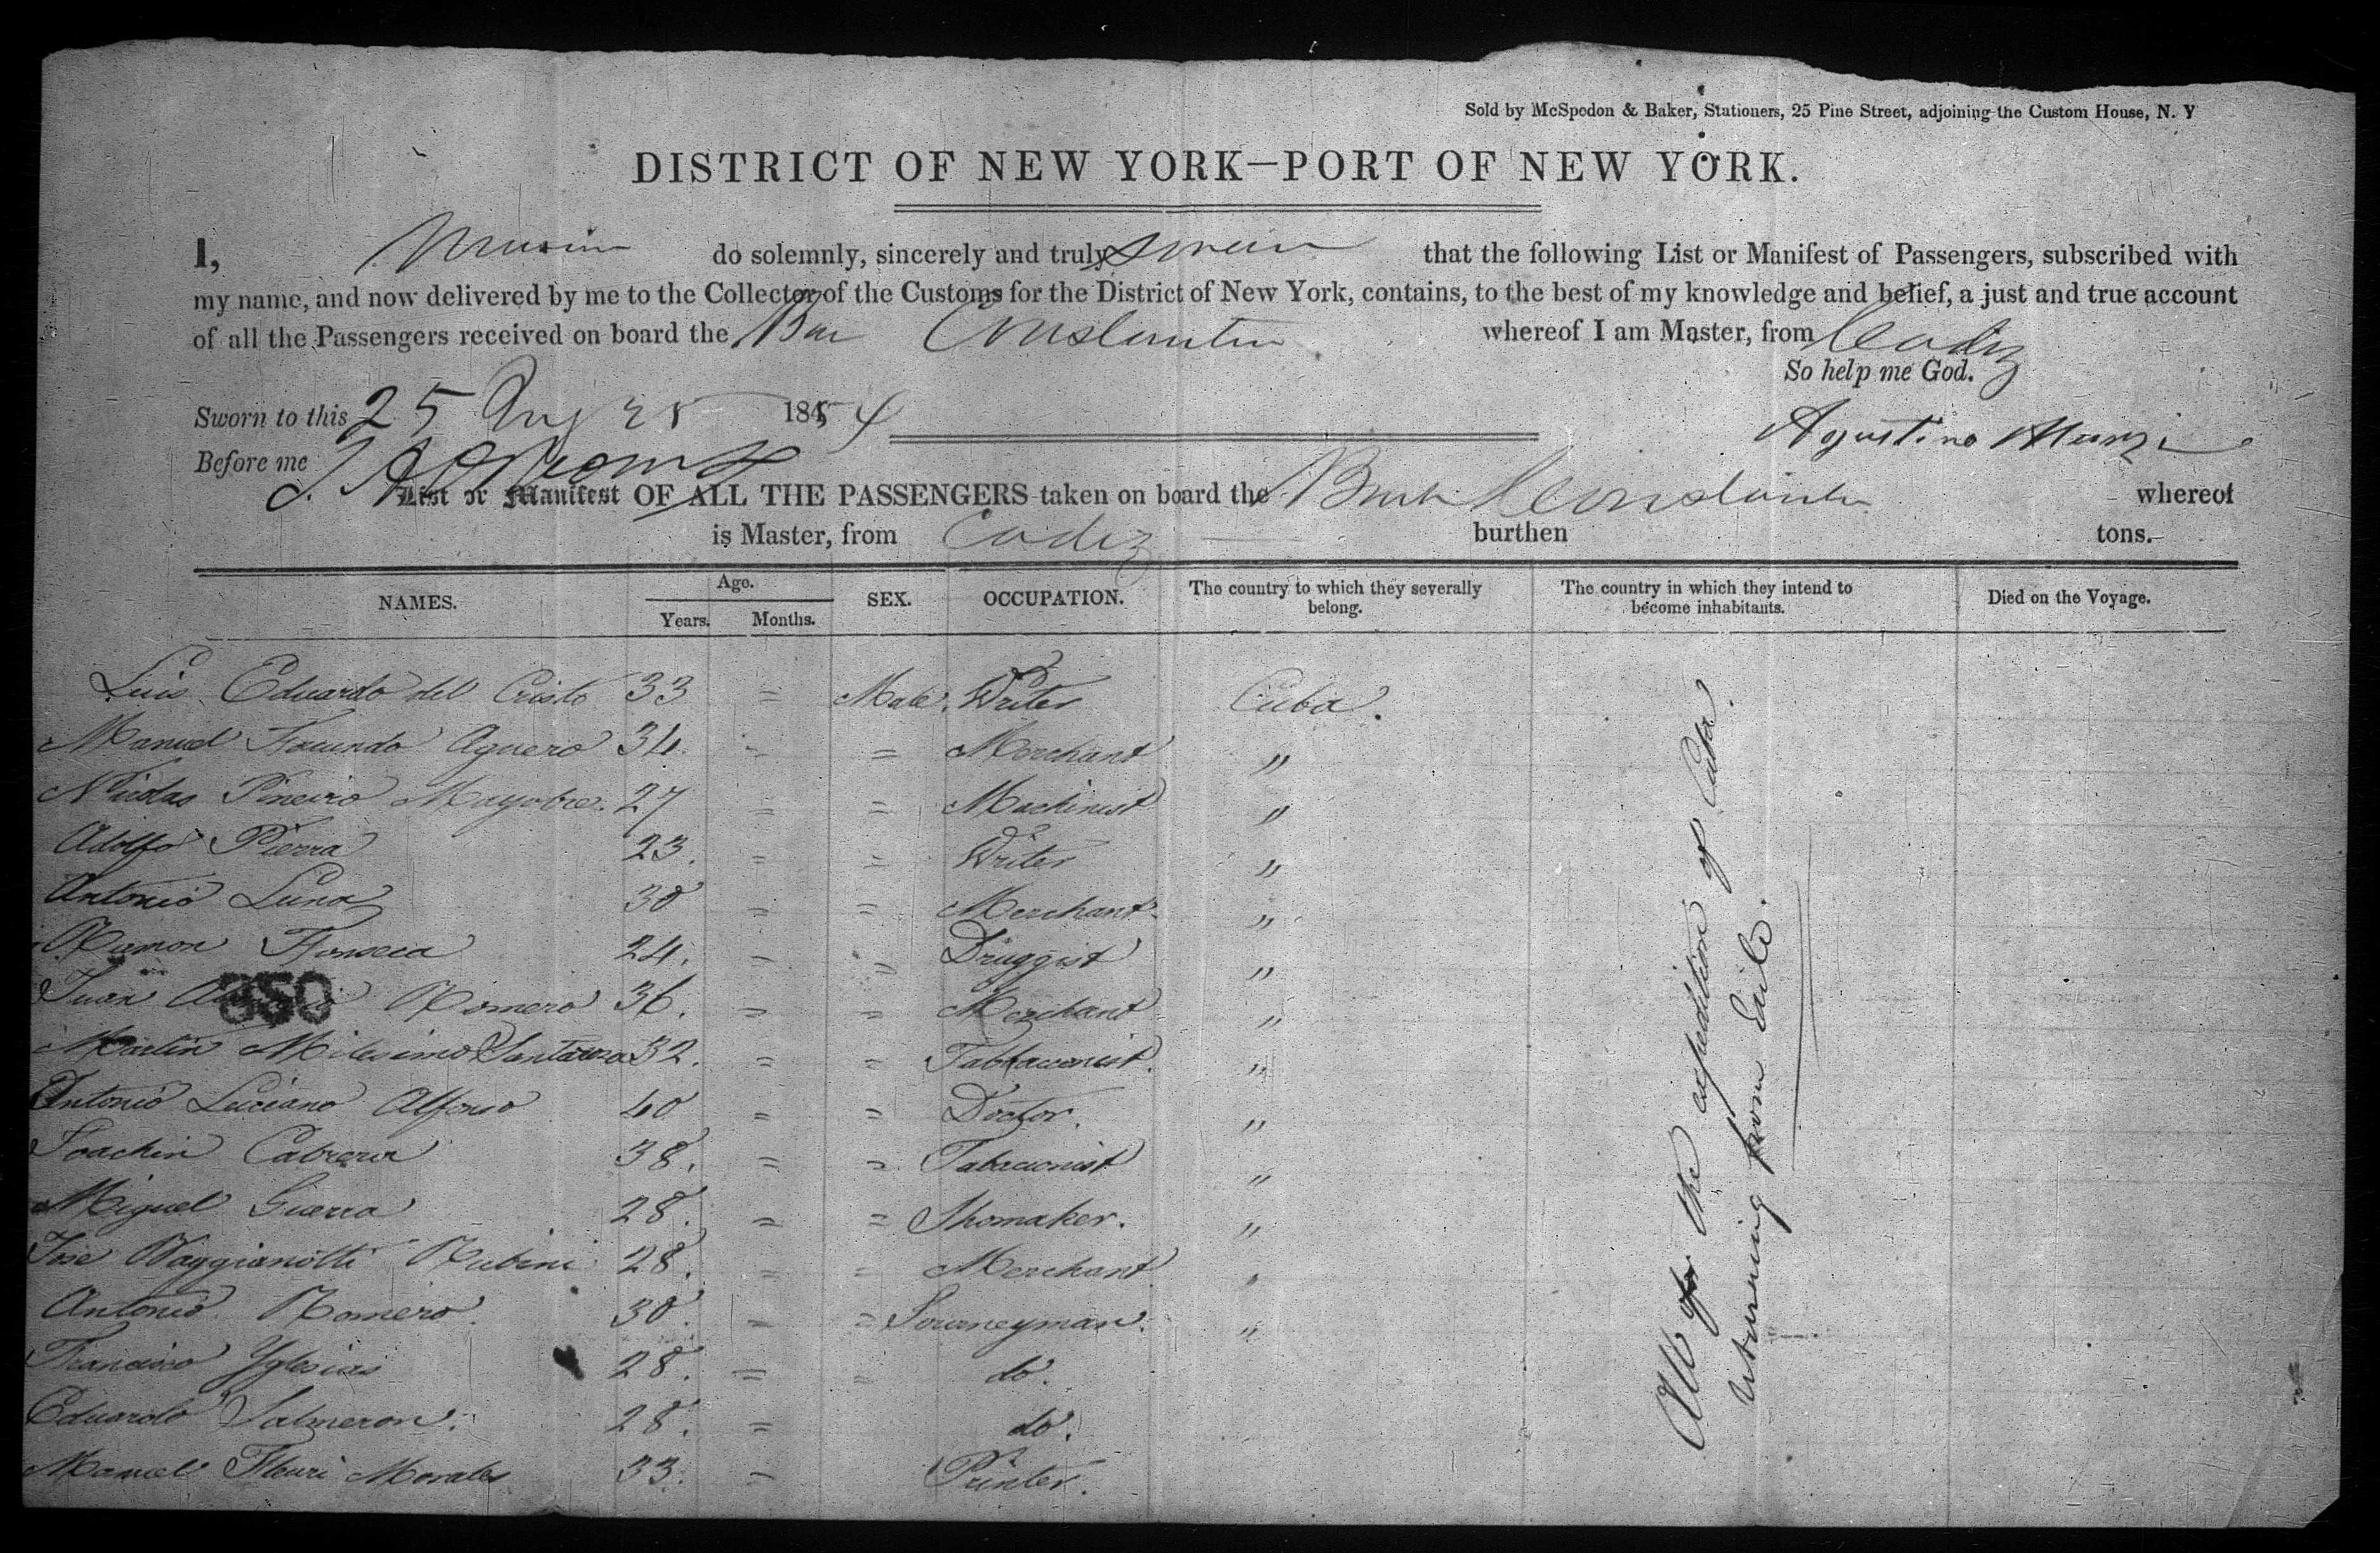 Sold by McSpedon & Baker, Stationers, 25 Pine Street, adjoining the Custom House, N. Y
DISTRICT OF NEW YORK—PORT OF NEW YORK.
I, do solemnly, sincerely and truly swear that the following List or Manifest of Passengers, subscribed with
my name, and now delivered by me to the Collector of the Customs for the District of New York, contains, to the best of my knowledge and belief, a just and true account
of all the Passengers received on board the Bar Constantin whereof I am Master, from Cadiz
So help me God.
Sworn to this 25 Aug 25 1854
Agustino
Before me
List or Manifest OF ALL THE PASSENGERS taken on board the Bark Constantin whereof
is Master, from Cadiz burthen tons.
NAMES. Age. Years. Months. SEX. OCCUPATION. The country to which they severally belong. The country in which they intend to become inhabitants. Died on the Voyage.
Luis Eduardo del Cristo 33 = Male. Writer Cuba.
Manuel Facundo Aguero 34. = = Merchant "
Nicolas Pineiro Mayobre. 27 = = Machinist "
Adolfo Pierra 23. = = Writer "
Antonio Luna 30 = = Merchant. "
Ramon Fonseca 24. = = Druggist "
Juan Romero 36. = = Merchant "
350
Martin Milesimo 32. = = "
Antonio Luciano Alfonso 40 = = Doctor. "
Joachin Cabrera 38. = = Tabaconist "
Miguel Guerra 28. = = Shomaker. "
Jose Rubini 28. = = Merchant "
Antonio Romero. 30. = = Journeyman. "
Francisco Yglesias 28. = = do.
Eduardo Salmeron. 28. = do.
Manuel Fleuri Morales 33. = Printer.
All of the expedition of Cuba.
returning from Exile.